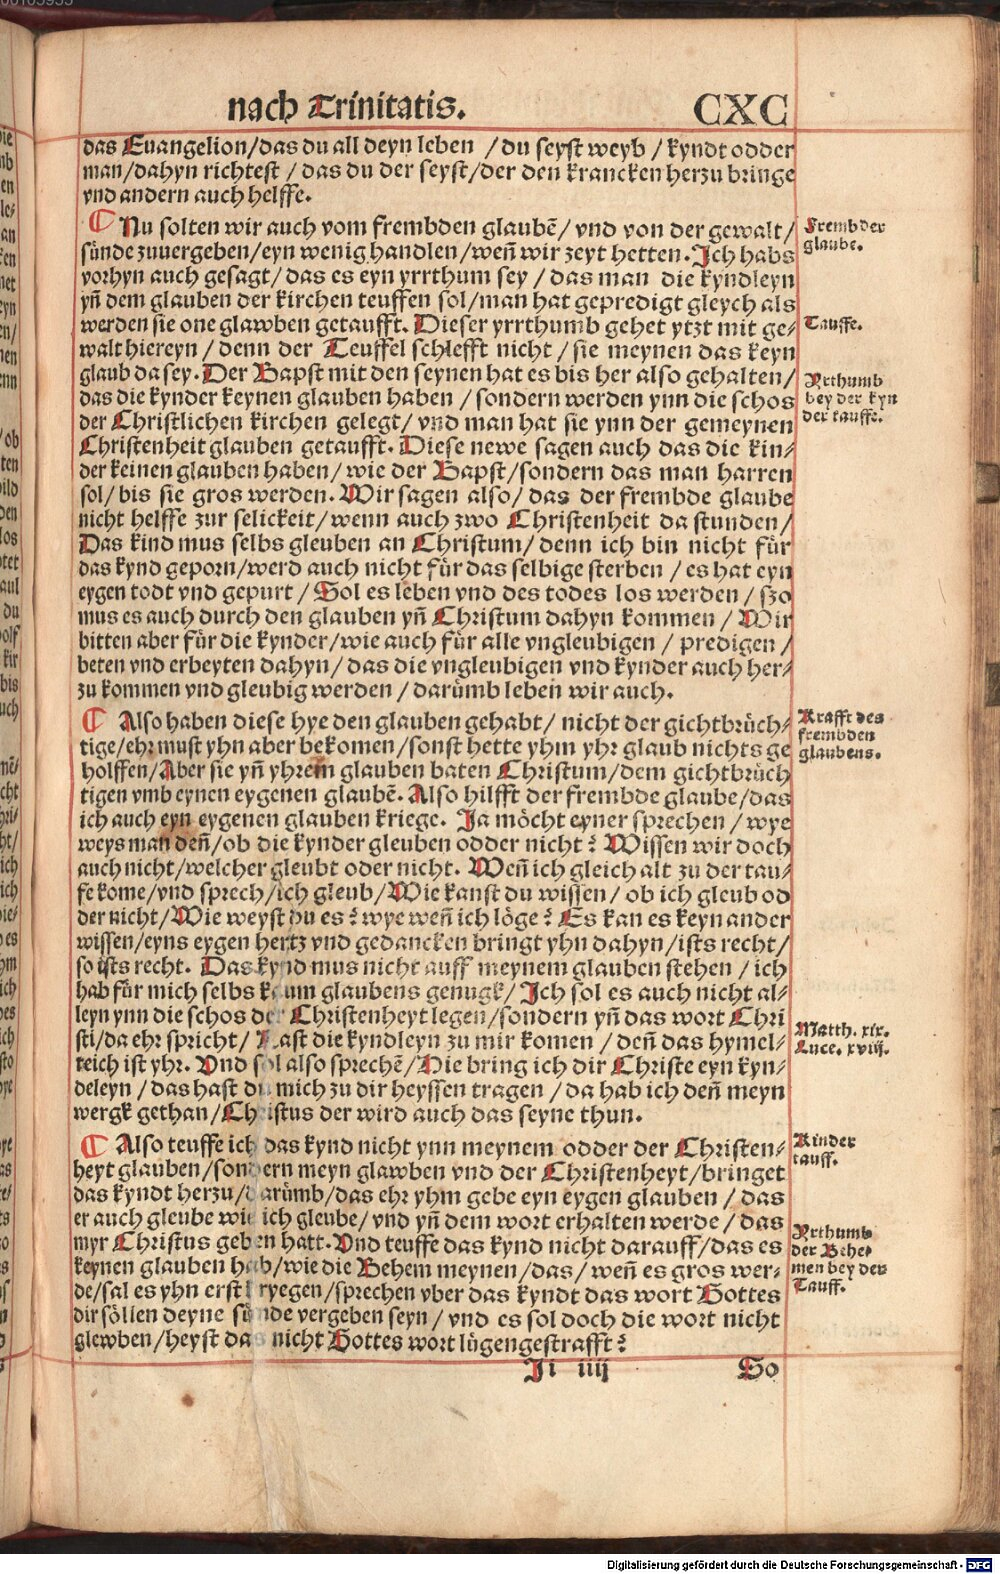 nach Trinitatis. CXC
das Euangelion/das du all deyn leben /du seyst weyb / kyndt odder
man/dahyn richtest /das du der seyst/der den krancken herzu bringe
vnd andern auch helffe.
¶ Nu solten wir auch vom frembden glaubē/ vnd von der gewalt/
sünde zuuergeben/eyn wenig handlen/weñ wir zeyt hetten. Ich habs
vorhyn auch gesagt/das es eyn yrrthum sey /das man die kyndleyn
yñ dem glauben der kirchen teuffen sol/man hat gepredigt gleych als
werden sie one glawben getaufft. Dieser yrrthumb gehet ytzt mit ge-
walt hiereyn /denn der Teuffel schlefft nicht /sie meynen das keyn
glaub da sey. Der Bapst mit den seynen hat es bis her also gehalten/
das die kynder keynen glauben haben /sondern werden ynn die schos
der Christlichen kirchen gelegt/ vnd man hat sie ynn der gemeynen
Christenheit glauben getaufft. Diese newe sagen auch das die kin-
der keinen glauben haben/wie der Bapst/sondern das man harren
sol/bis sie gros werden. Wir sagen also/das der frembde glaube
nicht helffe zur selickeit/wenn auch zwo Christenheit da stunden/
Das kind mus selbs gleuben an Christum/denn ich bin nicht für
das kynd geporn/werd auch nicht für das selbige sterben /es hat eyn
eygen todt vnd gepurt/Sol es leben vnd des todes los werden /szo
mus es auch durch den glauben yñ Christum dahyn kommen /Wir
bitten aber für die kynder/wie auch für alle vngleubigen / predigen /
beten vnd erbeyten dahyn/das die vngleubigen vnd kynder auch her-
zu kommen vnd gleubig werden /darümb leben wir auch.
¶ Also haben diese hye den glauben gehabt/ nicht der gichtbrüch-
tige/ehr must yhn aber bekomen/sonst hette yhm yhr glaub nichts ge
holffen/Aber sie yñ yhrem glauben baten Christum/dem gichtbrüch
tigen vmb eynen eygenen glaubē. Also hilfft der frembde glaube/das
ich auch eyn eygenen glauben kriege. Ja möcht eyner sprechen /wye
weys man deñ/ob die kynder gleuben odder nicht? Wissen wir doch
auch nicht/welcher gleubt oder nicht. Weñ ich gleich alt zu der tau-
fe kome/vnd sprech/ich gleub/Wie kanst du wissen/ob ich gleub od
der nicht/Wie weyst du es? wye weñ ich löge? Es kan es keyn ander
wissen/eyns eygen hertz vnd gedancken bringt yhn dahyn/ists recht/
so ists recht. Das kynd mus nicht auff meynem glauben stehen /ich
hab für mich selbs kaum glaubens genugk/Ich sol es auch nicht al-
leyn ynn die schos der Christenheyt legen/sondern yñ das wort Chri
sti/da ehr spricht/Last die kyndleyn zu mir komen /deñ das hymel-
reich ist yhr. Vnd sol also sprechē/Hie bring ich dir Christe eyn kyn-
deleyn /das hast du mich zu dir heyssen tragen /da hab ich deñ meyn
wergk gethan/Christus der wird auch das seyne thun.
¶ Also teuffe ich das kynd nicht ynn meynem odder der Christen-
heyt glauben/sondern meyn glawben vnd der Christenheyt/bringet
das kyndt herzu/darümb/das ehr yhm gebe eyn eygen glauben /das
er auch gleube wie ich gleube/vnd yñ dem wort erhalten werde /das
myr Christus geben hatt. Vnd teuffe das kynd nicht darauff/das es
keynen glauben hab/wie die Behem meynen/das/weñ es gros wer-
de/sal es yhn erst kryegen/sprechen vber das kyndt das wort Gottes
dir söllen deyne sünde vergeben seyn/ vnd es sol doch die wort nicht
glewben/heyst das nicht Gottes wort lügengestrafft?
Ii iiij So
Frembder
glaube.
Tauffe.
Yrthumb
bey der kyn
der tauffe.
Krafft des
frembden
glaubens.
Matth. xix.
Luce. xviij.
Kinder
tauff.
Yrthumb
der Behe-
men bey der
Tauff.
Digitalisierung gefördert durch die Deutsche Forschungsgemeinschaft - DFG